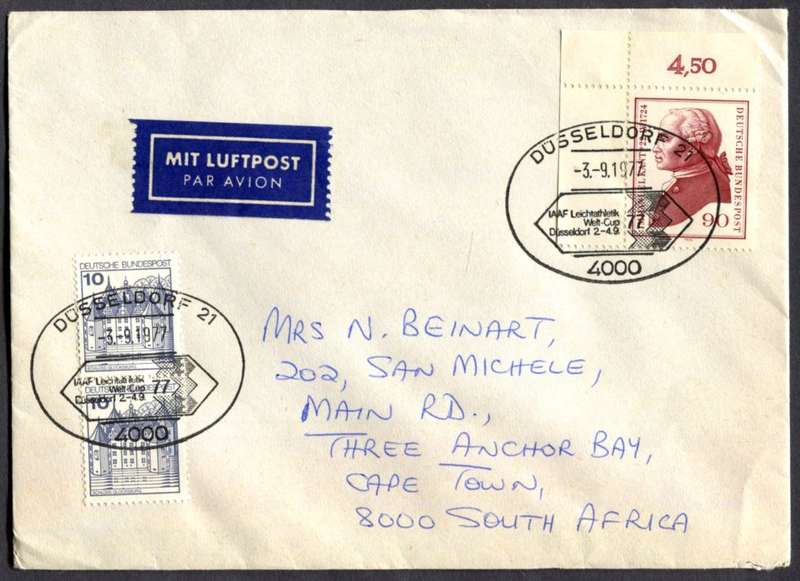 4,50
DEUTSCHE BUNDESPOST
90
DÜSSELDORF 21
-3.-9.1977
IAAF Leichtathletik
Welt-Cup 77
Düsseldorf 2.-4.9.
4000
MIT LUFTPOST
PAR AVION
DEUTSCHE BUNDESPOST
10
DÜSSELDORF 21
-3.-9.1977
IAAF Leichtathletik
Welt-Cup 77
Düsseldorf 2.-4.9.
DEUTSCHE BUNDESPOST
10
4000
MRS N. BEINART,
202, SAN MICHELE,
MAIN RD.,
THREE ANCHOR BAY,
CAPE TOWN,
8000 SOUTH AFRICA